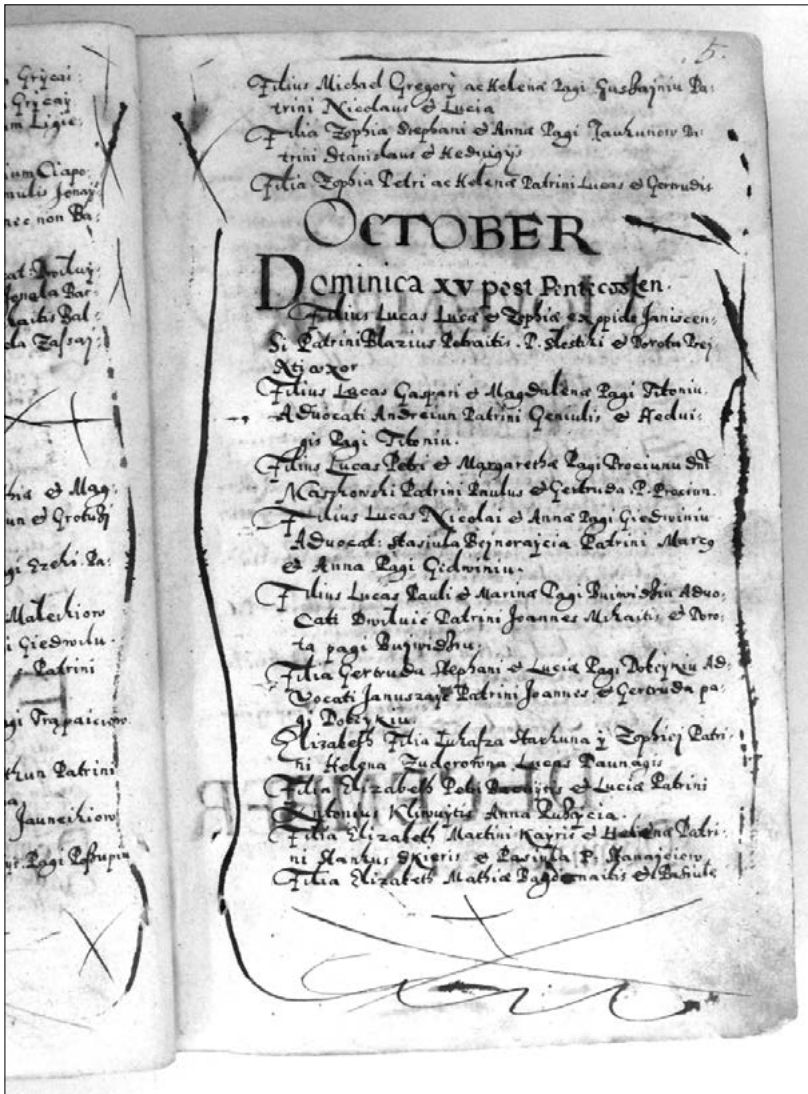 Grycai:
Grycay
m Ligie:
ium Ciapo:
mulis Jonay
nec non Ba:
cat: Dowiluy:
Jonała Bar:
kaitis Bal:
da Zassaj:
hia & Mag:
un & Grotuzy
gi Ezehi. Pa:
Malechiow
i Giedwilu.
Patrini
gi Trąpaiciow
thun Patrini
a
Jauneikiow
Pagi Poszupin
5.
Filius Michael Gregorÿ ac Helenæ Pagi Pa:
trini Nicolaus & Lucia
Filia Zophia Stephani & Annæ Pagi Jaukunow Pa:
trini Stanislaus & Hedwigys
Filia Zophia Petri ac Helenæ Patrini Lucas & Gertrudis
OCTOBER
Dominica XV post Pentecosten.
Filius Lucas Lucæ & Zophiæ ex opido Janiscen:
Si Patrini Blazius Petraitis. P. & Dorota
uxor
Filius Lucas Gaspari & Magdalenæ Pagi Titoniu.
Advocati Andreiun Patrini Geniulis & Hedui:
gis Pagi Titoniu.
Filius Lucas Petri & Margarethæ Pagi Prociunu dni
Naszkowski Patrini Paulus & Gertruda. P. Prociun.
Filius Lucas Nicolai & Annæ Pagi Giedwiniu
Advocat: Stasiula Bejnorajcia Patrini Marcq
& Anna Pagi Gidwiniu.
Filius Lucas Pauli & Marinæ Pagi Buiwidziu Advo:
cati Dwiluic Patrini Joannes Mikaitis & Doro:
ta pagi Bujwidziu.
Filia Gertruda Stephani & Luciæ Pagi Dobzyniu Ad:
vocati Januszajc Patrini Joannes & Gertruda pa:
gi Dobzykiu.
Elizabeth Filia Lukasza Starkuna ÿ Zophiej Patri:
ni Helena Zuderowna Lucas Daunagis
Filia Elizabeth Petri & Luciæ Patrini
Antonius Kliwuÿtis Anna Rubajcia.
Filia Elizabeth Martini Kayris & Helenæ Patri:
ni Stankus Skieris & Pasiula P: Stanajciow
Filia Elizabeth Mathiæ Bagdonaitis & Basiulæ